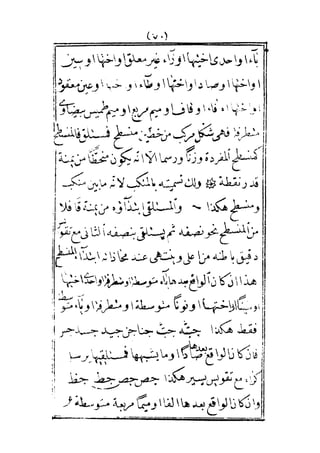 (٧٠)
باء او احدى اختيها او زاء غير معلق او اختها او سين
او اختها او صاد او اختها او طاء او اختها او عين معقود
او اختها او فاء او قاف او ميم مربع او ميم طمس بيضاوى
متطرفا فهى شكل مركب من خطين منسطح فمستلق فالمنسطح
كمنسطح المفردة وزنا ورسما الا انه يكون منحطا من يمنة
قدر نقطة ولك تسميته بالمنكب لانه مابين منكب
ومنسطح هكذا والمستلقى ابتداؤه من يمنة قافلا
من المنسطح نحو نصفه ثم يستلق بنصفه الثانى مع تقوس
دقيق باطنه من اعلى وينتهى عند محاذاة ابتداء المنسطح
هذا ان كان الواقع بعدها باء متوسطة او متطرفة او احدى اختيها
او اختها او نونا متوسطة او متطرفة او ياء متوسطة
فقط هكذا حبثه جت جناجن جيد جسد حر
فان كان الواقع بعدها صادا او ما يشبهها فمستلقيها يرسا
مع تقويس يسير هكذا حص جص خط جفظ
وان كان الواقع بعدها الفا او ميما مربعة متوسطة